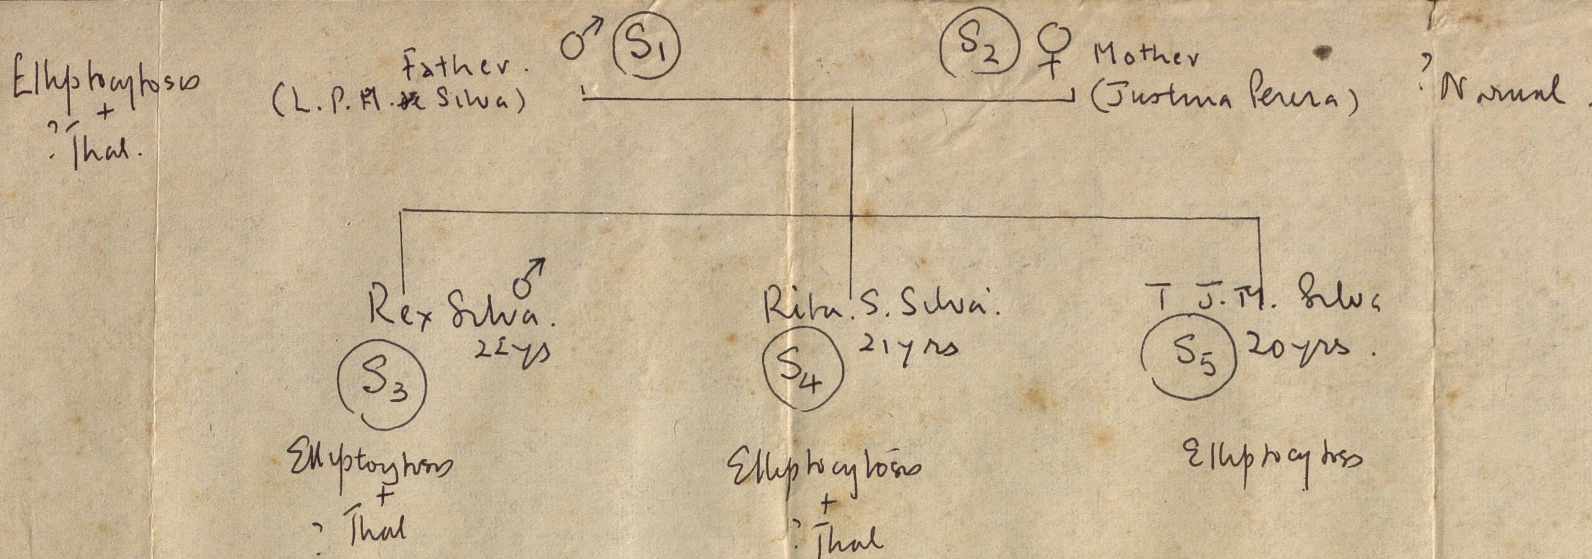 ♂ S1 S2 ♀
Elliptocytosis
+
? Thal.
Father.
(L. P. M. Silva)
Mother
(Justina Perera)
? Normal.
Rex Silva. ♂
22 ys
S3
Elliptocytosis
+
? Thal
Rita. S. Silva.
21 yrs
S4
Elliptocytosis
+
? Thal
T J. M. Silva
S5 20 yrs.
Elliptocytosis